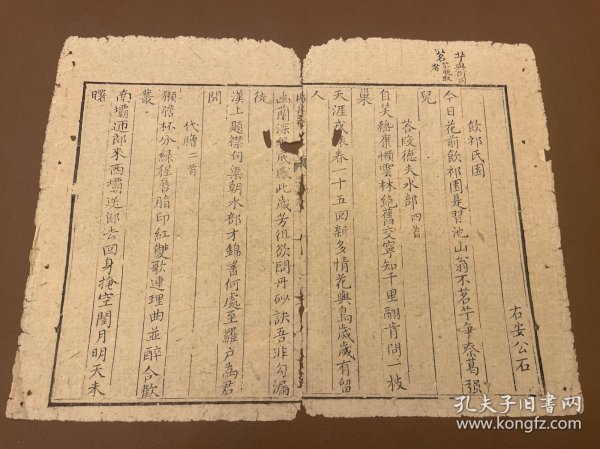 右安公石
飲祁氏園
今日花前飲祁園是習池山翁不茗芋爭奈葛强
兒
答段德夫水部四首
自笑懶雲林絕舊交寧知千里翮肯問一枝
巢
天涯春一十五回新多情花與鳥歲歲有留
人
幽蘭深底感此歲芳徂欲問丹砂訣吾非勾漏
徒
漢上題襟句梁朝水部才錦書何處至羅戶為君
開
代贈二首
獺膽杯分緑猩唇脂印紅雙歌連理曲並醉合歡
叢
南壩郎來西壩送郎去回身掩空閨月明天未
曙
孔夫子旧书网
book.kongfz.com